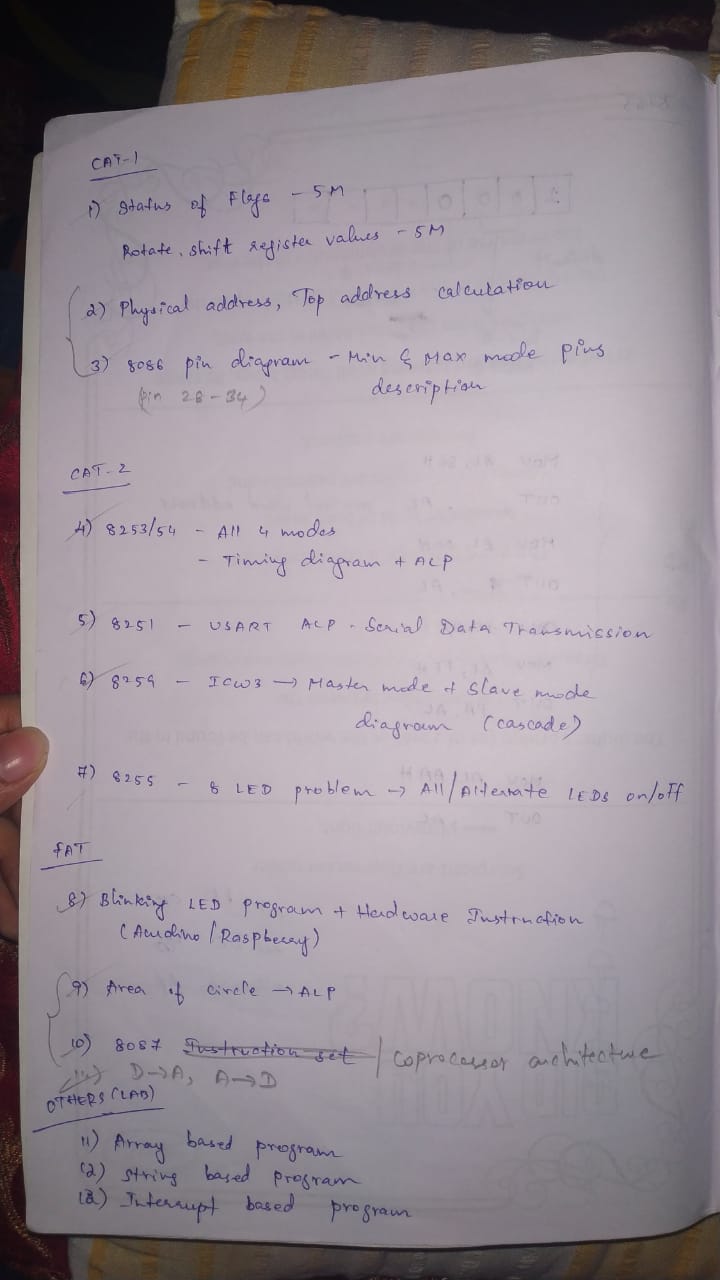 CAT-1
1) Status of Flags - 5M
Rotate, shift register values - 5M
2) Physical address, Top address calculation
3) 8086 pin diagram - Min & Max mode pins
(pin 28-34) description
CAT-2
4) 8253/54 - All 4 modes
- Timing diagram + ALP
5) 8251 - USART ALP - Serial Data Transmission
6) 8259 - ICW3 → Master mode & Slave mode
diagram (cascade)
7) 8255 - 8 LED problem → All/Alternate LEDs on/off
FAT
8) Blinking LED program + Hardware Instruction
(Aurdino/Raspberry)
9) Area of circle → ALP
10) 8087 Instruction set / coprocessor architecture
D→A, A→D
OTHERS (LAB)
11) Array based program
12) String based program
13) Interrupt based program